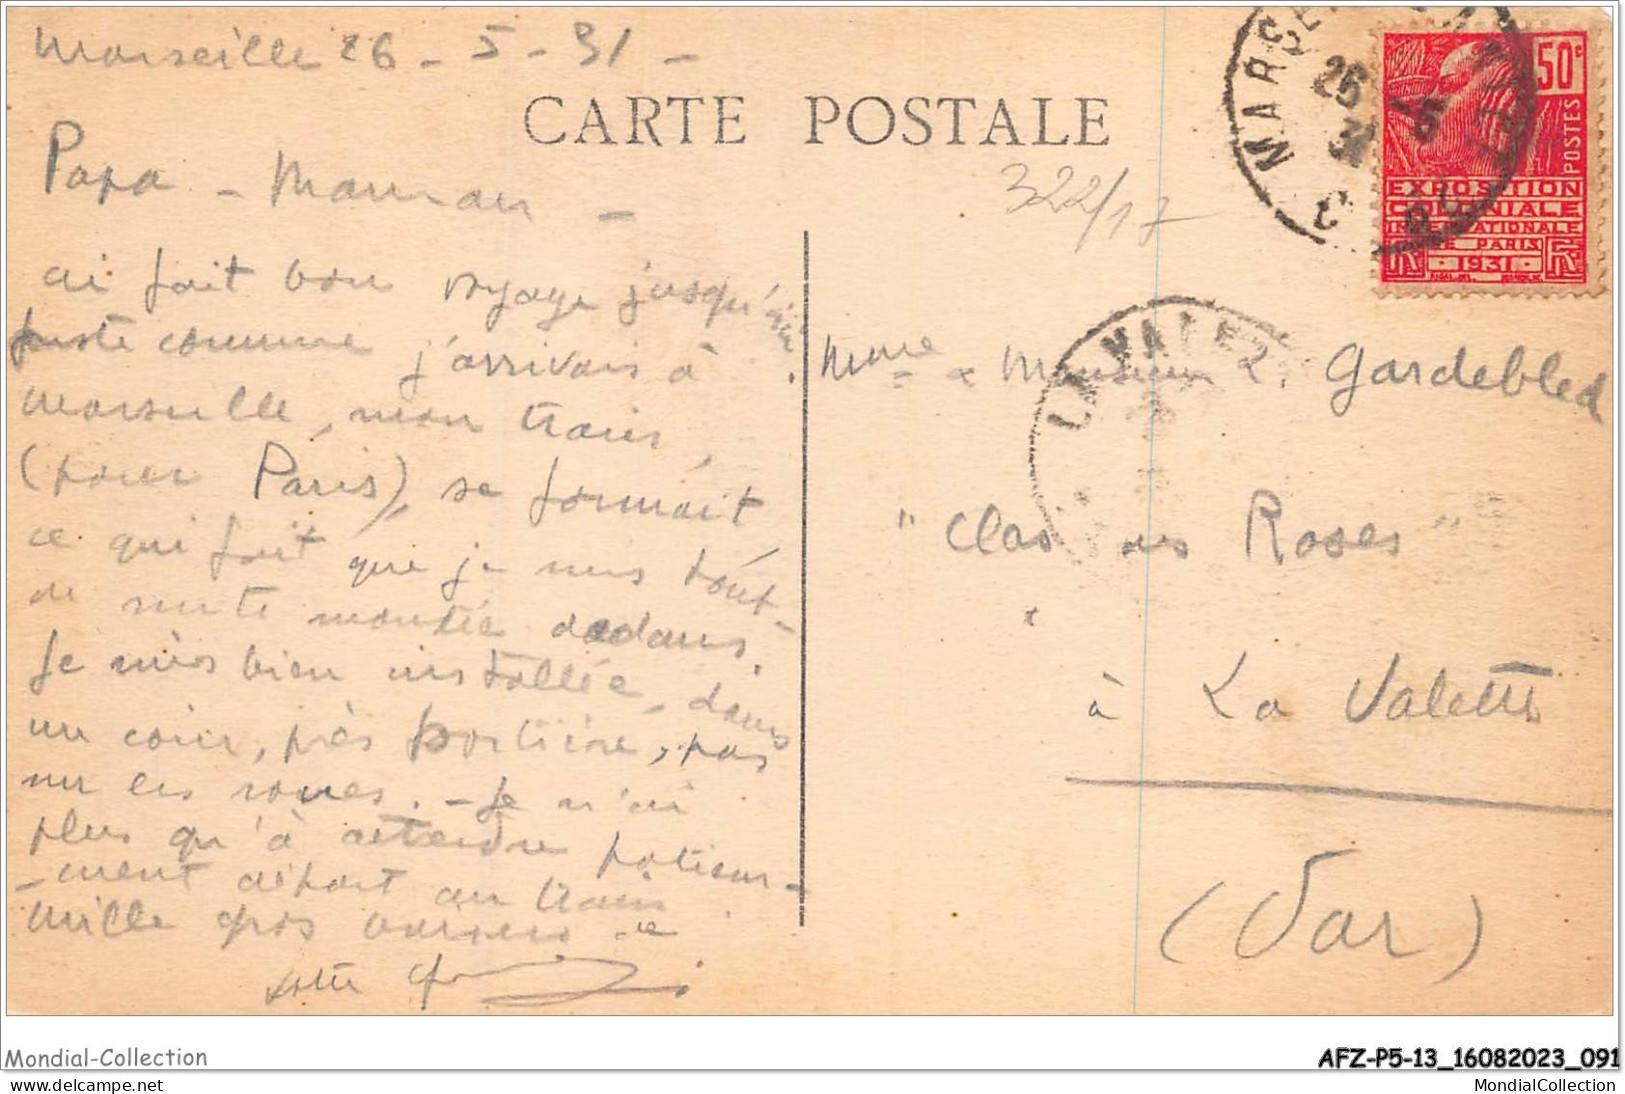 Marseille 26 - 5 - 31 -
CARTE POSTALE
Papa - Maman -
322/17
ai fait bon voyage jusqu'ici.
Juste comme j'arrivais à
Marseille, mon train,
(pour Paris), se formait
ce qui fait que je suis tout-
de suite montée dedans.
Je suis bien installée, dans
un coin, près portière, pas
sur les roues. - Je n'ai
plus qu'à attendre patiem-
-ment départ du train.
Mille gros baisers de
votre
MARSEILLE
26 5
31
50c
POSTES
EXPOSITION
COLONIALE
INTERNATIONALE
DE PARIS
RF 1931 RF
LA VALETTE
Mme & Monsieur L. Gardebled
"Clos des Roses"
à La Valette
(Var)
Mondial-Collection
AFZ-P5-13_16082023_091
www.delcampe.net
MondialCollection